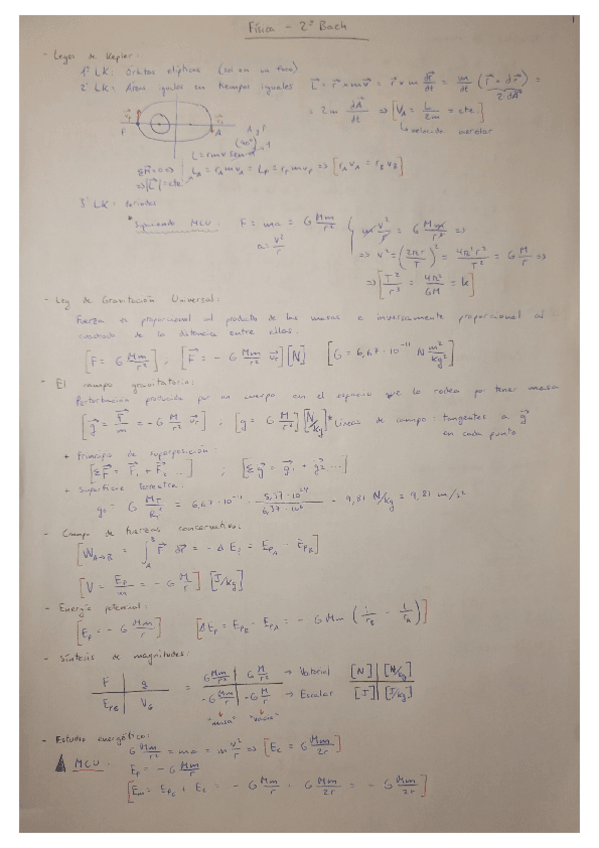 Física - 2º Bach
1
- Leyes de Kepler:
1ª LK: Órbitas elípticas (sol en un foco)
2ª LK: Áreas iguales en tiempos iguales
L⃗ = r⃗ × mv⃗ = r⃗ × m dr⃗/dt = m/dt (r⃗ × dr⃗) =
2dA⃗
= 2m dA⃗/dt ⇒ [V_A = L/2m = cte.]
↳ velocidad areolar
L_A = r_A m v_A = L_P = r_P m v_P ⇒
3ª LK: Periodos
* Suponiendo MCU: F = ma = G Mm/r²
a = v²/r
m v²/r = G Mm/r² ⇒
⇒ v² = (2πr/T)² = 4π²r²/T² = G M/r ⇒
⇒ [T²/r³ = 4π²/GM = k]
- Ley de Gravitación Universal:
Fuerza es proporcional al producto de las masas e inversamente proporcional al
cuadrado de la distancia entre ellas.
[F = G Mm/r²] ; [F⃗ = - G Mm/r² u⃗r] [N] [G = 6,67 · 10⁻¹¹ N m²/kg²]
- El campo gravitatorio:
Perturbación producida por un cuerpo en el espacio que lo rodea por tener masa
[g⃗ = F⃗/m = - G M/r² u⃗r] ; [g = G M/r²] [N/kg] * Líneas de campo: tangentes a g⃗
en cada punto
* Principio de superposición:
[ΣF⃗ = F⃗₁ + F⃗₂ ...] ; [Σg⃗ = g⃗₁ + g⃗₂ ...]
* Superficie terrestre:
g₀ = G M_T/R_T² = 6,67 · 10⁻¹¹ = 9,81 N/kg = 9,81 m/s²
- Campo de fuerzas conservativo:
[W_A→B = ∫ F⃗ dr⃗ = - ΔE_p = E_pA - E_pB]
[V = E_p/m = - G M/r] [J/kg]
- Energía potencial:
[E_p = - G Mm/r] [ΔE_p = E_pB - E_pA = - G Mm (1/r_B - 1/r_A)]
- Síntesis de magnitudes:
F | g = G Mm/r² | G M/r² → Vectorial [N] | [N/kg]
E_pg | V_g -G Mm/r | -G M/r → Escalar [J] | [J/kg]
- Estudio energético:
MCU: G Mm/r² = ma = m v²/r ⇒ [E_c = G Mm/2r]
E_p = - G Mm/r
= - G Mm/r + G Mm/2r = - G Mm/2r]